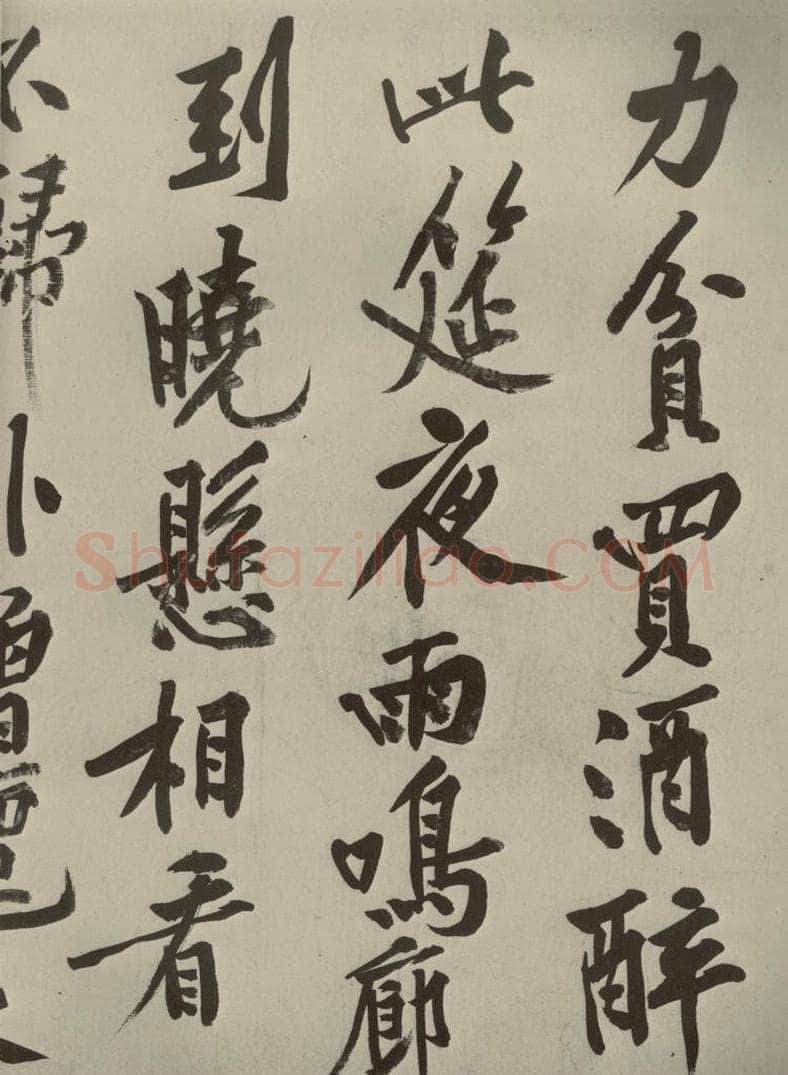 力貧買酒醉
此筵夜雨鳴廊
到曉懸相看
不歸
Shufaziliao.COM